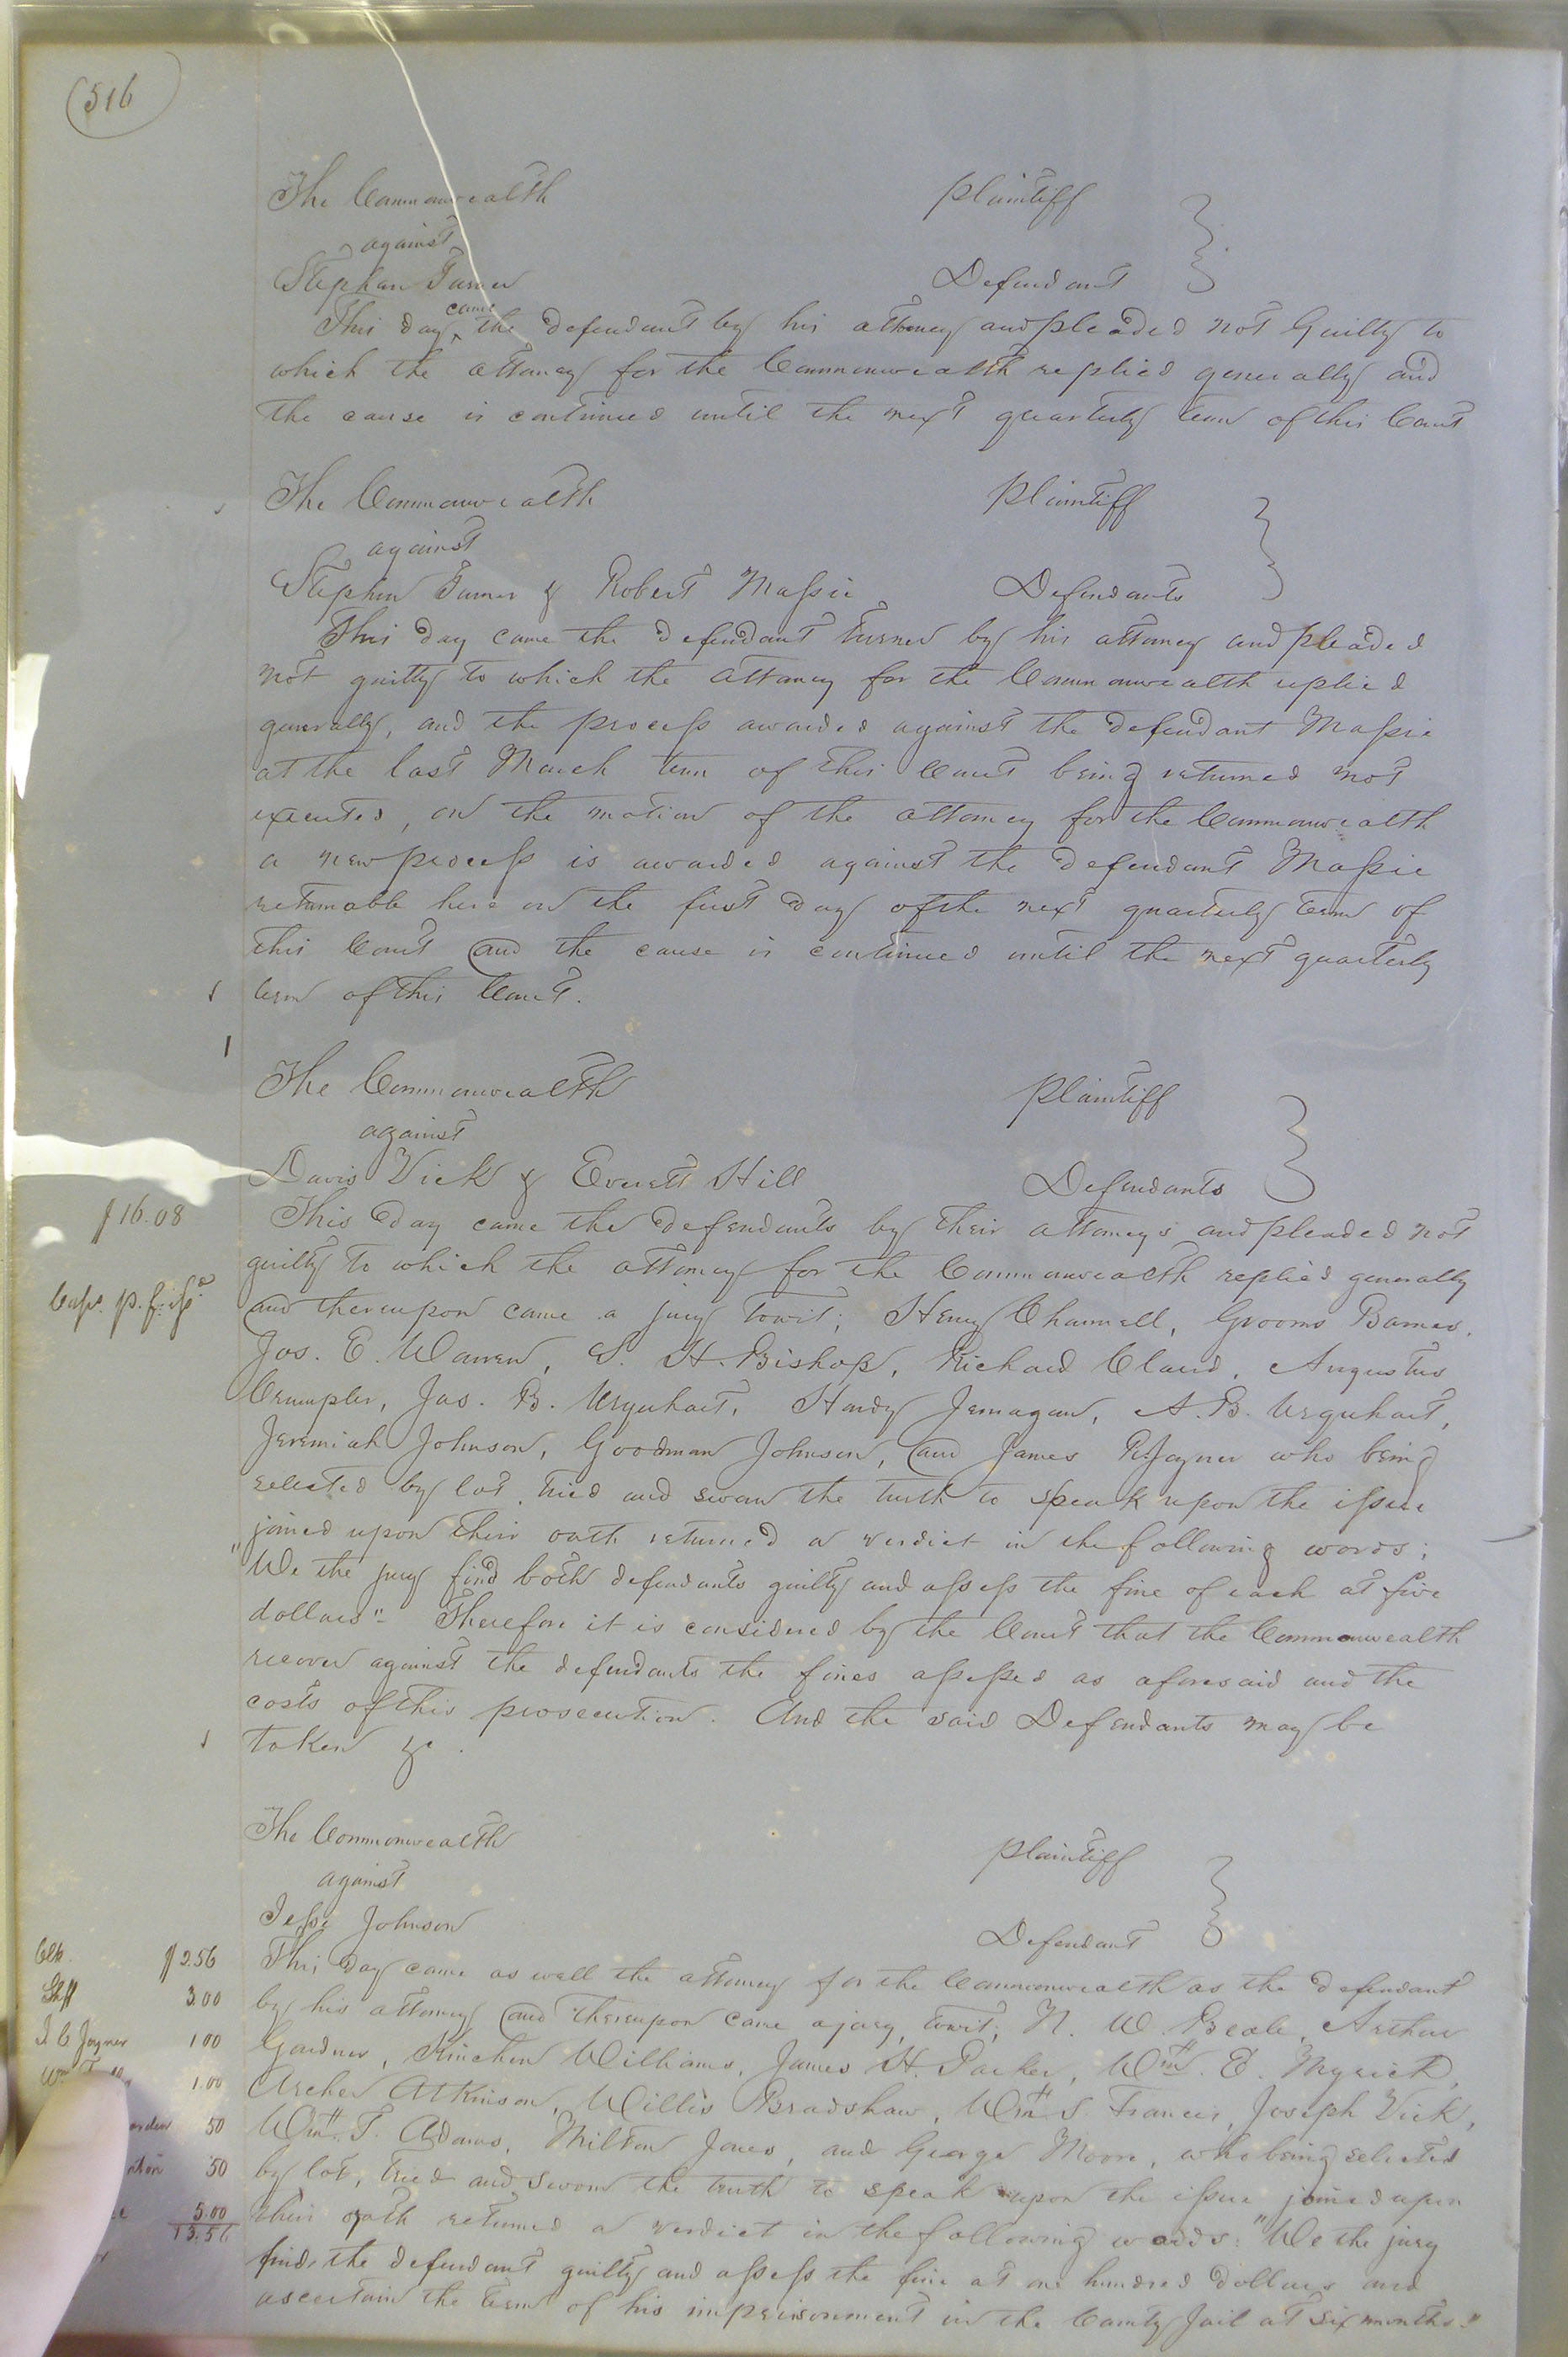 516
The Commonwealth Plaintiff
against
Stephen Turner Defendant
This day came the defendant by his attorney and pleaded not Guilty to
which the attorney for the Commonwealth replied generally and
the cause is continued until the next quarterly term of this Court
The Commonwealth Plaintiff
against
Stephen Turner & Robert Massie Defendants
This day came the defendant Turner by his attorney and pleaded
not guilty to which the attorney for the Commonwealth replied
generally, and the process awarded against the defendant Massie
at the last March term of this Court being returned not
executed, on the motion of the attorney for the Commonwealth
a new process is awarded against the defendant Massie
returnable here on the first day of the next quarterly term of
this Court and the cause is continued until the next quarterly
term of this Court.
The Commonwealth Plaintiff
against
Davis Vick & Everett Hill Defendants
$16.08 This day came the defendants by their attorneys and pleaded not
guilty to which the attorney for the Commonwealth replied generally
and thereupon came a jury towit; Henry Channell, Grooms Barnes,
Jos. E. Warren, S. H. Bishop, Richard Claud, Augustus
Crumpler, Jas. B. Urquhart, Hardy Jernagan, A. B. Urquhart,
Jeremiah Johnson, Goodman Johnson, and James R. Joyner who being
selected by lot, tried and sworn the truth to speak upon the issue
joined upon their oath returned a verdict in the following words;
"We the jury find both defendants guilty and assess the fine of each at five
dollars" Therefore it is considered by the Court that the Commonwealth
recover against the defendants the fines assessed as aforesaid and the
costs of this prosecution. And the said Defendants may be
taken &c.
The Commonwealth Plaintiff
against
Jesse Johnson Defendant
Clk. $2.56 This day came as well the attorney for the Commonwealth as the defendant
Shff 3.00 by his attorney and thereupon came a jury, towit; N. W. Beale, Arthur
J C Joyner 1.00 Gardner, Kinchen Williams, James H. Parker, Wm. E. Myrick,
1.00 Archer Atkinson, Willis Bradshaw, Wm. S. Francis, Joseph Vick,
50 Wm. T. Adams, Milton Jones, and George Moore, who being selected
50 by lot, tried and sworn the truth to speak upon the issue joined upon
5.00 their oath returned a verdict in the following words: "We the jury
13.56 find the defendant guilty and assess the fine at one hundred dollars and
ascertain the term of his imprisonment in the County Jail at six months."